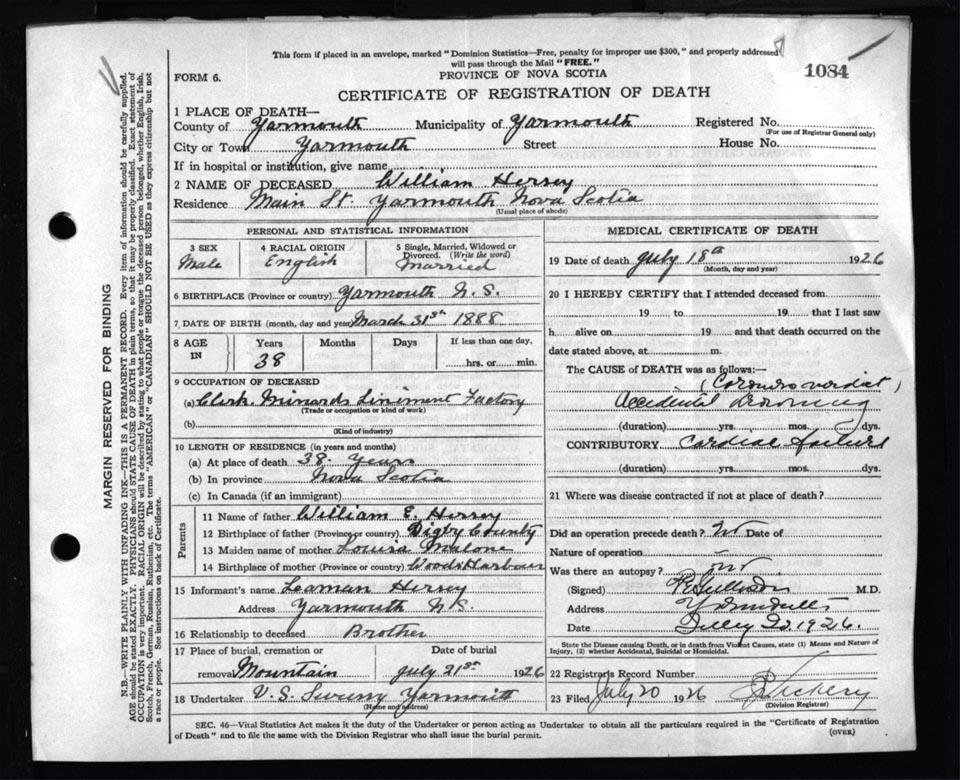 This form if placed in an envelope, marked "Dominion Statistics—Free, penalty for improper use $300," and properly addressed
will pass through the Mail "FREE."
1084
FORM 6.
PROVINCE OF NOVA SCOTIA
CERTIFICATE OF REGISTRATION OF DEATH
1 PLACE OF DEATH—
County of Yarmouth Municipality of Yarmouth Registered No.
(For use of Registrar General only)
City or Town Yarmouth Street House No.
If in hospital or institution, give name
2 NAME OF DECEASED William Hersey
Residence Main St. Yarmouth Nova Scotia
(Usual place of abode)
PERSONAL AND STATISTICAL INFORMATION
3 SEX Male
4 RACIAL ORIGIN English
5 Single, Married, Widowed or Divorced. (Write the word) Married
6 BIRTHPLACE (Province or country) Yarmouth N.S.
7 DATE OF BIRTH (month, day and year) March 31st 1888
8 AGE IN Years 38 Months Days If less than one day, hrs. or min.
9 OCCUPATION OF DECEASED
(a) Clerk. Minards Liniment Factory
(Trade or occupation or kind of work)
(b)
(Kind of industry)
10 LENGTH OF RESIDENCE (in years and months)
(a) At place of death 38 Years
(b) In province Nova Scotia
(c) In Canada (if an immigrant)
Parents
11 Name of father William E. Hersey
12 Birthplace of father (Province or country) Digby County
13 Maiden name of mother Louisa Malone
14 Birthplace of mother (Province or country) Woods Harbour
15 Informant's name Leaman Hersey
Address Yarmouth N.S.
16 Relationship to deceased Brother
17 Place of burial, cremation or removal Mountain
Date of burial July 21st 1926
18 Undertaker V. S. Sweeny Yarmouth
(Name and address)
MEDICAL CERTIFICATE OF DEATH
19 Date of death July 18th 1926
(Month, day and year)
20 I HEREBY CERTIFY that I attended deceased from
19 to 19 that I last saw
h alive on 19 and that death occurred on
date stated above, at m.
The CAUSE of DEATH was as follows:—
(Coroners verdict)
Accidental drowning
(duration) yrs. mos. dys.
CONTRIBUTORY Cardiac failure
(duration) yrs. mos. dys.
21 Where was disease contracted if not at place of death?
Did an operation precede death? No Date of
Nature of operation
Was there an autopsy?
(Signed) M.D.
Address
Date 1926.
State the Disease causing Death, or in death from Violent Causes, state (1) Means and Nature of
Injury, (2) whether Accidental, Suicidal or Homicidal.
22 Registrar's Record Number
23 Filed July 20 1926
(Division Registrar)
SEC. 46—Vital Statistics Act makes it the duty of the Undertaker or person acting as Undertaker to obtain all the particulars required in the "Certificate of Registration
of Death" and to file the same with the Division Registrar who shall issue the burial permit.
(OVER)
MARGIN RESERVED FOR BINDING
N.B.—WRITE PLAINLY WITH UNFADING INK—THIS IS A PERMANENT RECORD. Every item of information should be carefully supplied.
AGE should be stated EXACTLY. PHYSICIANS should STATE CAUSE OF DEATH in plain terms, so that it may be properly classified. Exact statement of
OCCUPATION is very important. RACIAL ORIGIN will be described by stating to what people or tongue the deceased person belonged, whether English, Irish,
Scotch, French, German, Russian, Ruthenian, etc. The terms "AMERICAN" or "CANADIAN" SHOULD NOT BE USED as they express citizenship but not
a race or people. See instructions on back of Certificate.